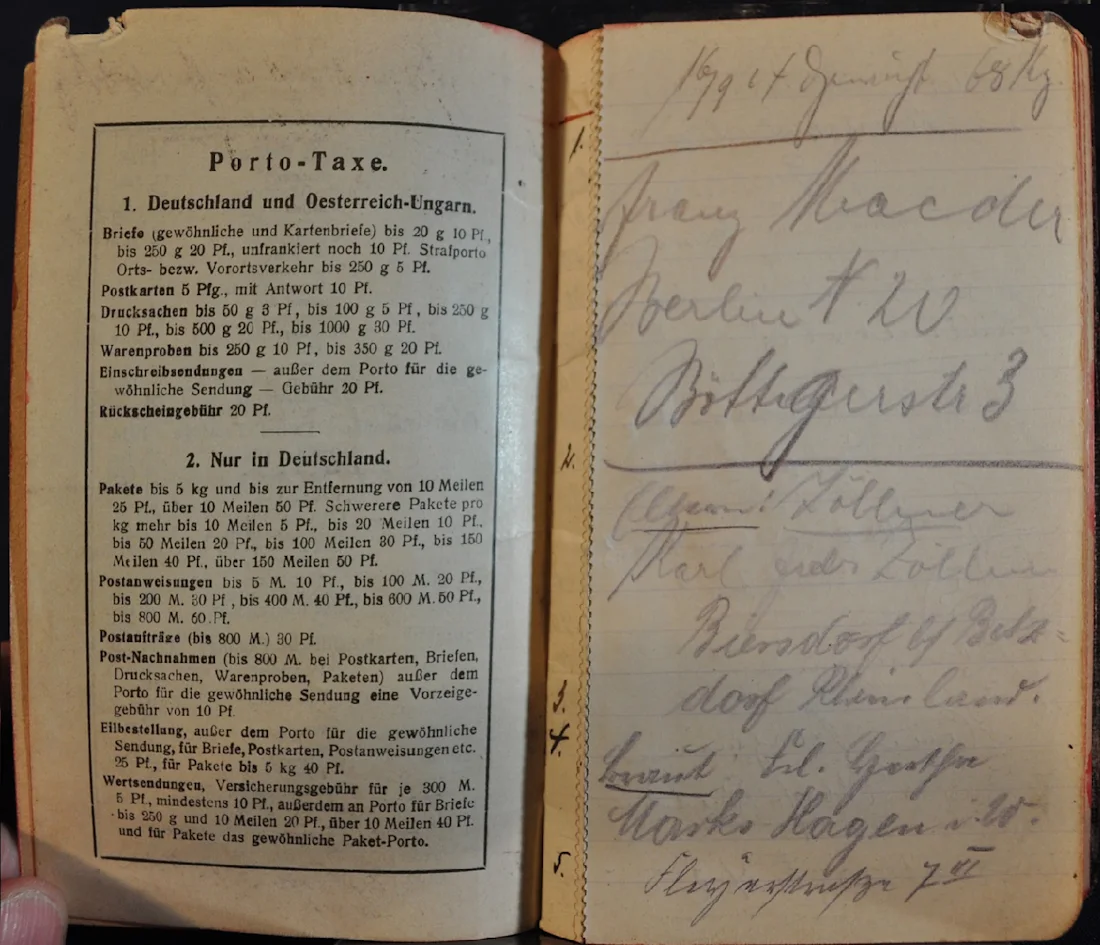 Porto-Taxe.
1. Deutschland und Oesterreich-Ungarn.
Briefe (gewöhnliche und Kartenbriefe) bis 20 g 10 Pf.,
bis 250 g 20 Pf., unfrankiert noch 10 Pf. Strafporto
Orts- bezw. Vorortsverkehr bis 250 g 5 Pf.
Postkarten 5 Pfg., mit Antwort 10 Pf.
Drucksachen bis 50 g 3 Pf, bis 100 g 5 Pf, bis 250 g
10 Pf., bis 500 g 20 Pf., bis 1000 g 30 Pf.
Warenproben bis 250 g 10 Pf, bis 350 g 20 Pf.
Einschreibsendungen — außer dem Porto für die ge-
wöhnliche Sendung — Gebühr 20 Pf.
Rückscheingebühr 20 Pf.
2. Nur in Deutschland.
Pakete bis 5 kg und bis zur Entfernung von 10 Meilen
25 Pf., über 10 Meilen 50 Pf. Schwerere Pakete pro
kg mehr bis 10 Meilen 5 Pf., bis 20 Meilen 10 Pf.,
bis 50 Meilen 20 Pf., bis 100 Meilen 30 Pf., bis 150
Meilen 40 Pf., über 150 Meilen 50 Pf.
Postanweisungen bis 5 M. 10 Pf., bis 100 M. 20 Pf.,
bis 200 M. 30 Pf, bis 400 M. 40 Pf., bis 600 M. 50 Pf.,
bis 800 M. 60 Pf.
Postaufträge (bis 800 M.) 30 Pf.
Post-Nachnahmen (bis 800 M. bei Postkarten, Briefen,
Drucksachen, Warenproben, Paketen) außer dem
Porto für die gewöhnliche Sendung eine Vorzeige-
gebühr von 10 Pf
Eilbestellung, außer dem Porto für die gewöhnliche
Sendung, für Briefe, Postkarten, Postanweisungen etc.
25 Pf., für Pakete bis 5 kg 40 Pf.
Wertsendungen, Versicherungsgebühr für je 300 M.
5 Pf., mindestens 10 Pf., außerdem an Porto für Briefe
bis 250 g und 10 Meilen 20 Pf., über 10 Meilen 40 Pf.
und für Pakete das gewöhnliche Paket-Porto.
68 Kg.
1.
Franz Macder
Berlin N 20
Böttgerstr 3
2.
Zöllner
Karl
Biersdorf b/ Betz=
dorf Rheinland.
3.
4.
Braut: Frl. Gertha
Marks Hagen i. W.
5.